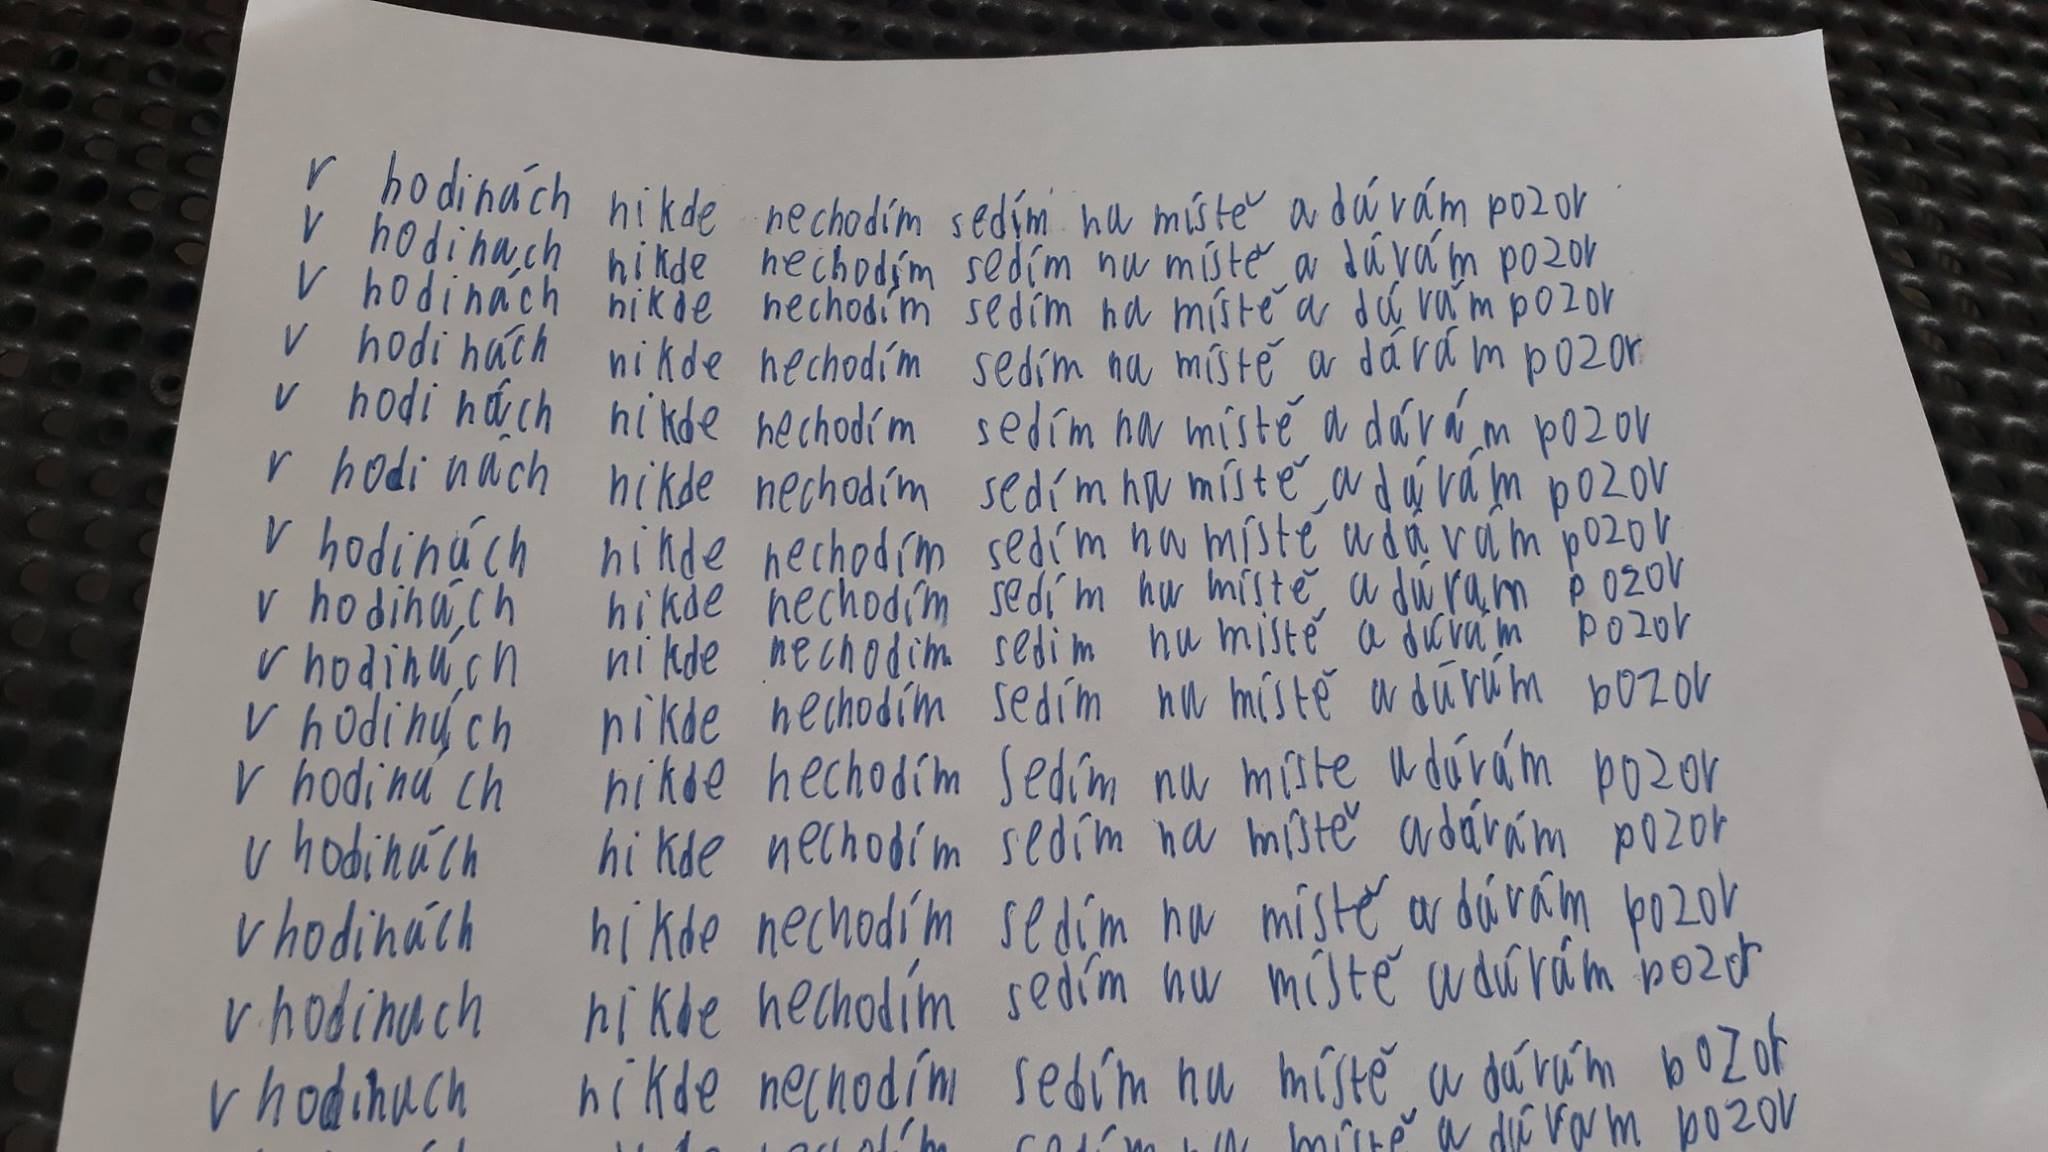 v hodinách nikde nechodím sedím na místě a dávám pozor
v hodinach nikde nechodím sedím na místě a dávám pozor
v hodinách nikde nechodím sedím na místě a dávám pozor
v hodinách nikde nechodím sedím na místě a dávám pozor
v hodinách nikde nechodím sedím na místě a dávám pozor
v hodinách nikde nechodím sedím na místě a dávám pozor
v hodinách nikde nechodím sedím na místě a dávám pozor
v hodinách nikde nechodím sedím na místě a dávam pozor
v hodinách nikde nechodím sedím na místě a dávám pozor
v hodinách nikde nechodím sedím na místě a dávám pozor
v hodinách nikde nechodím sedím na míste a dávám pozor
v hodinách nikde nechodím sedím na místě a dávám pozor
v hodinách nikde nechodím sedím na místě a dávám pozor
v hodinach nikde nechodím sedím na místě a dávám pozor
v hodinach nikde nechodím sedím na místě a dávám pozor
nikde nechodím sedím na místě a dávam pozor